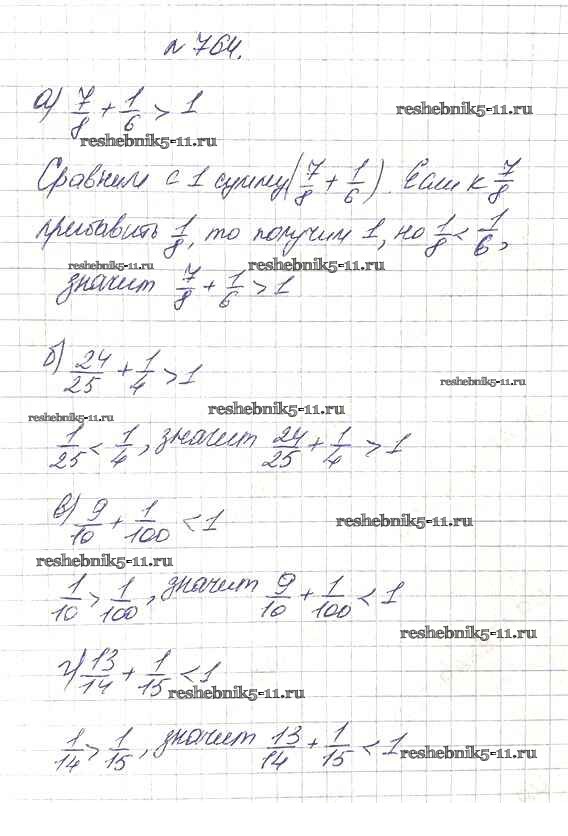 № 764.
а) 7/8 + 1/6 > 1
reshebnik5-11.ru
reshebnik5-11.ru
Сравним с 1 сумму (7/8 + 1/6). Если к 7/8
прибавить 1/8, то получим 1, но 1/8 < 1/6,
reshebnik5-11.ru
reshebnik5-11.ru
значит 7/8 + 1/6 > 1
б) 24/25 + 1/4 > 1
reshebnik5-11.ru
reshebnik5-11.ru
reshebnik5-11.ru
1/25 < 1/4, значит 24/25 + 1/4 > 1
в) 9/10 + 1/100 < 1
reshebnik5-11.ru
reshebnik5-11.ru
1/10 > 1/100, значит 9/10 + 1/100 < 1
reshebnik5-11.ru
г) 13/14 + 1/15 < 1
reshebnik5-11.ru
1/14 > 1/15, значит 13/14 + 1/15 < 1
reshebnik5-11.ru